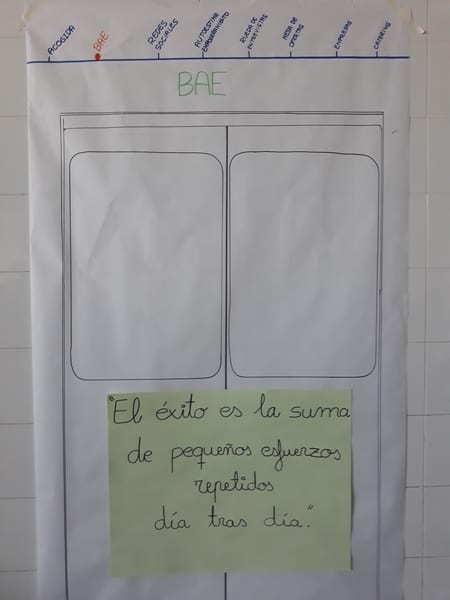 ACOGIDA
BAE
REDES
SOCIALES
AUTOESTIMA
EMPODERAMIENTO
RUEDA DE
ENTREVISTAS
MESA DE
OFERTAS
EMPRESAS
CATERING
BAE
"El éxito es la suma
de pequeños esfuerzos
repetidos
día tras día."